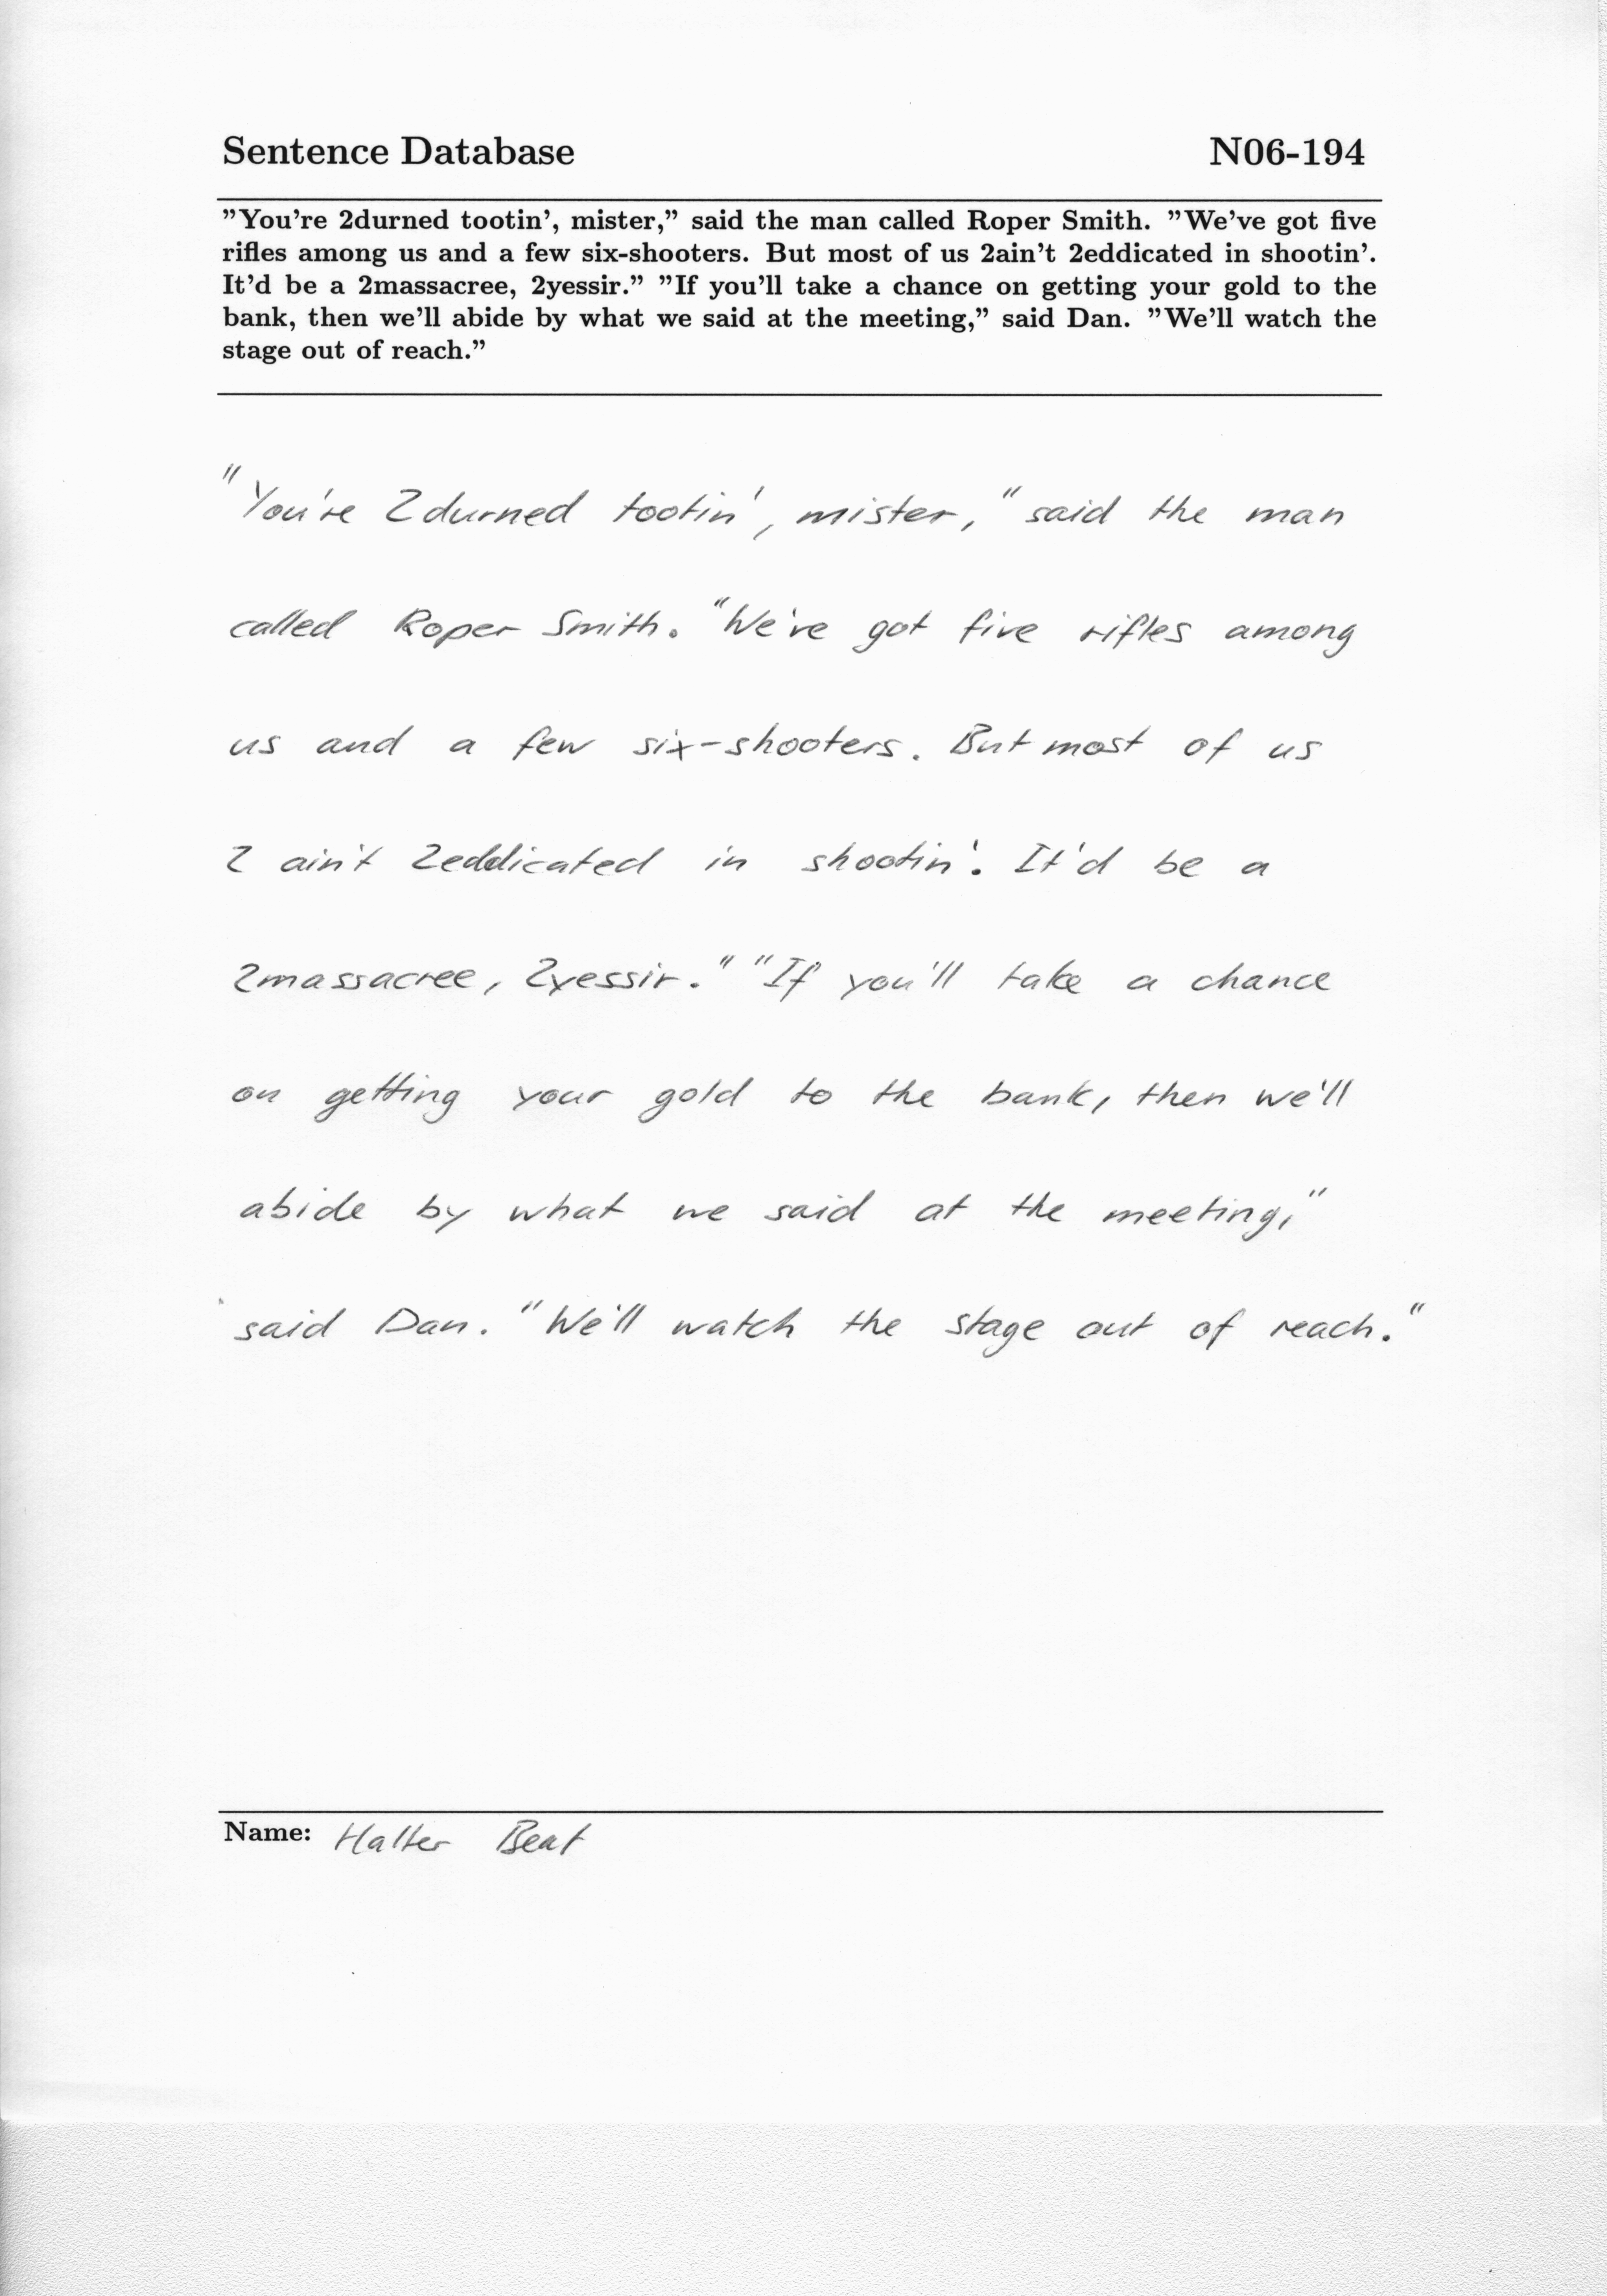 Sentence Database N06-194
"You're 2durned tootin', mister," said the man called Roper Smith. "We've got five
rifles among us and a few six-shooters. But most of us 2ain't 2eddicated in shootin'.
It'd be a 2massacree, 2yessir." "If you'll take a chance on getting your gold to the
bank, then we'll abide by what we said at the meeting," said Dan. "We'll watch the
stage out of reach."
"You're 2durned tootin', mister," said the man
called Roper Smith. "We've got five rifles among
us and a few six-shooters. But most of us
2 ain't 2eddicated in shootin'. It'd be a
2massacree, 2yessir." "If you'll take a chance
on getting your gold to the bank, then we'll
abide by what we said at the meeting,"
said Dan. "We'll watch the stage out of reach."
Name: Halter Beat